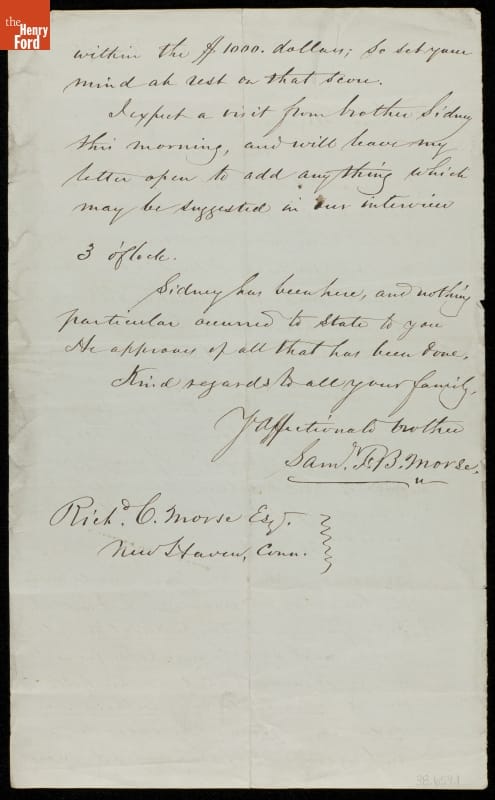 the
Henry
Ford
within the $1000. dollars; so set your
mind at rest on that score.
I expect a visit from brother Sidney
this morning, and will leave my
letter open to add anything which
may be suggested in our interview
3 o'flock.
Sidney has been here, and nothing
particular occurred to state to you
He approves of all that has been done.
Kind regards to all your family.
Yr affectionate brother
Saml. F. B. Morse.
Richd. C. Morse Esqr.
New Haven, Conn.